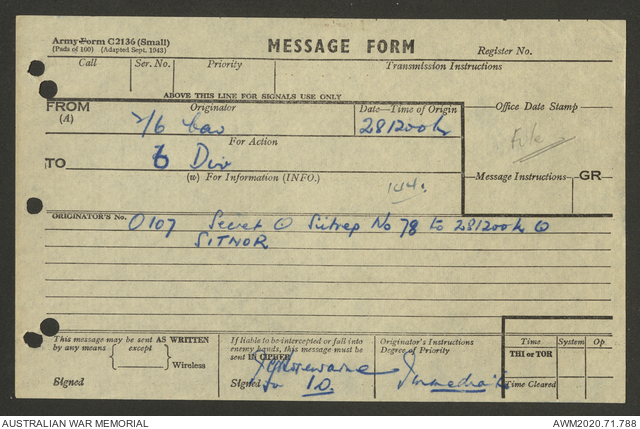 Army Form C2136 (Small)
(Pads of 100) (Adapted Sept. 1943)
MESSAGE FORM
Register No.
Call Ser. No. Priority Transmission Instructions
ABOVE THIS LINE FOR SIGNALS USE ONLY
FROM
(A)
Originator
2/6 Cav
Date—Time of Origin
281200K
Office Date Stamp
File
For Action
TO
6 Div
(W) For Information (INFO.)
Message Instructions GR
ORIGINATOR'S No.
O107 Secret Sitrep No 78 to 281200K
SITNOR
This message may be sent AS WRITTEN
by any means except
Wireless
Signed
If liable to be intercepted or fall into
enemy hands, this message must be
sent IN CIPHER
Signed
IO
Originator's Instructions
Degree of Priority
Immediate
Time System Op.
THI or TOR
Time Cleared
AUSTRALIAN WAR MEMORIAL
AWM2020.71.788